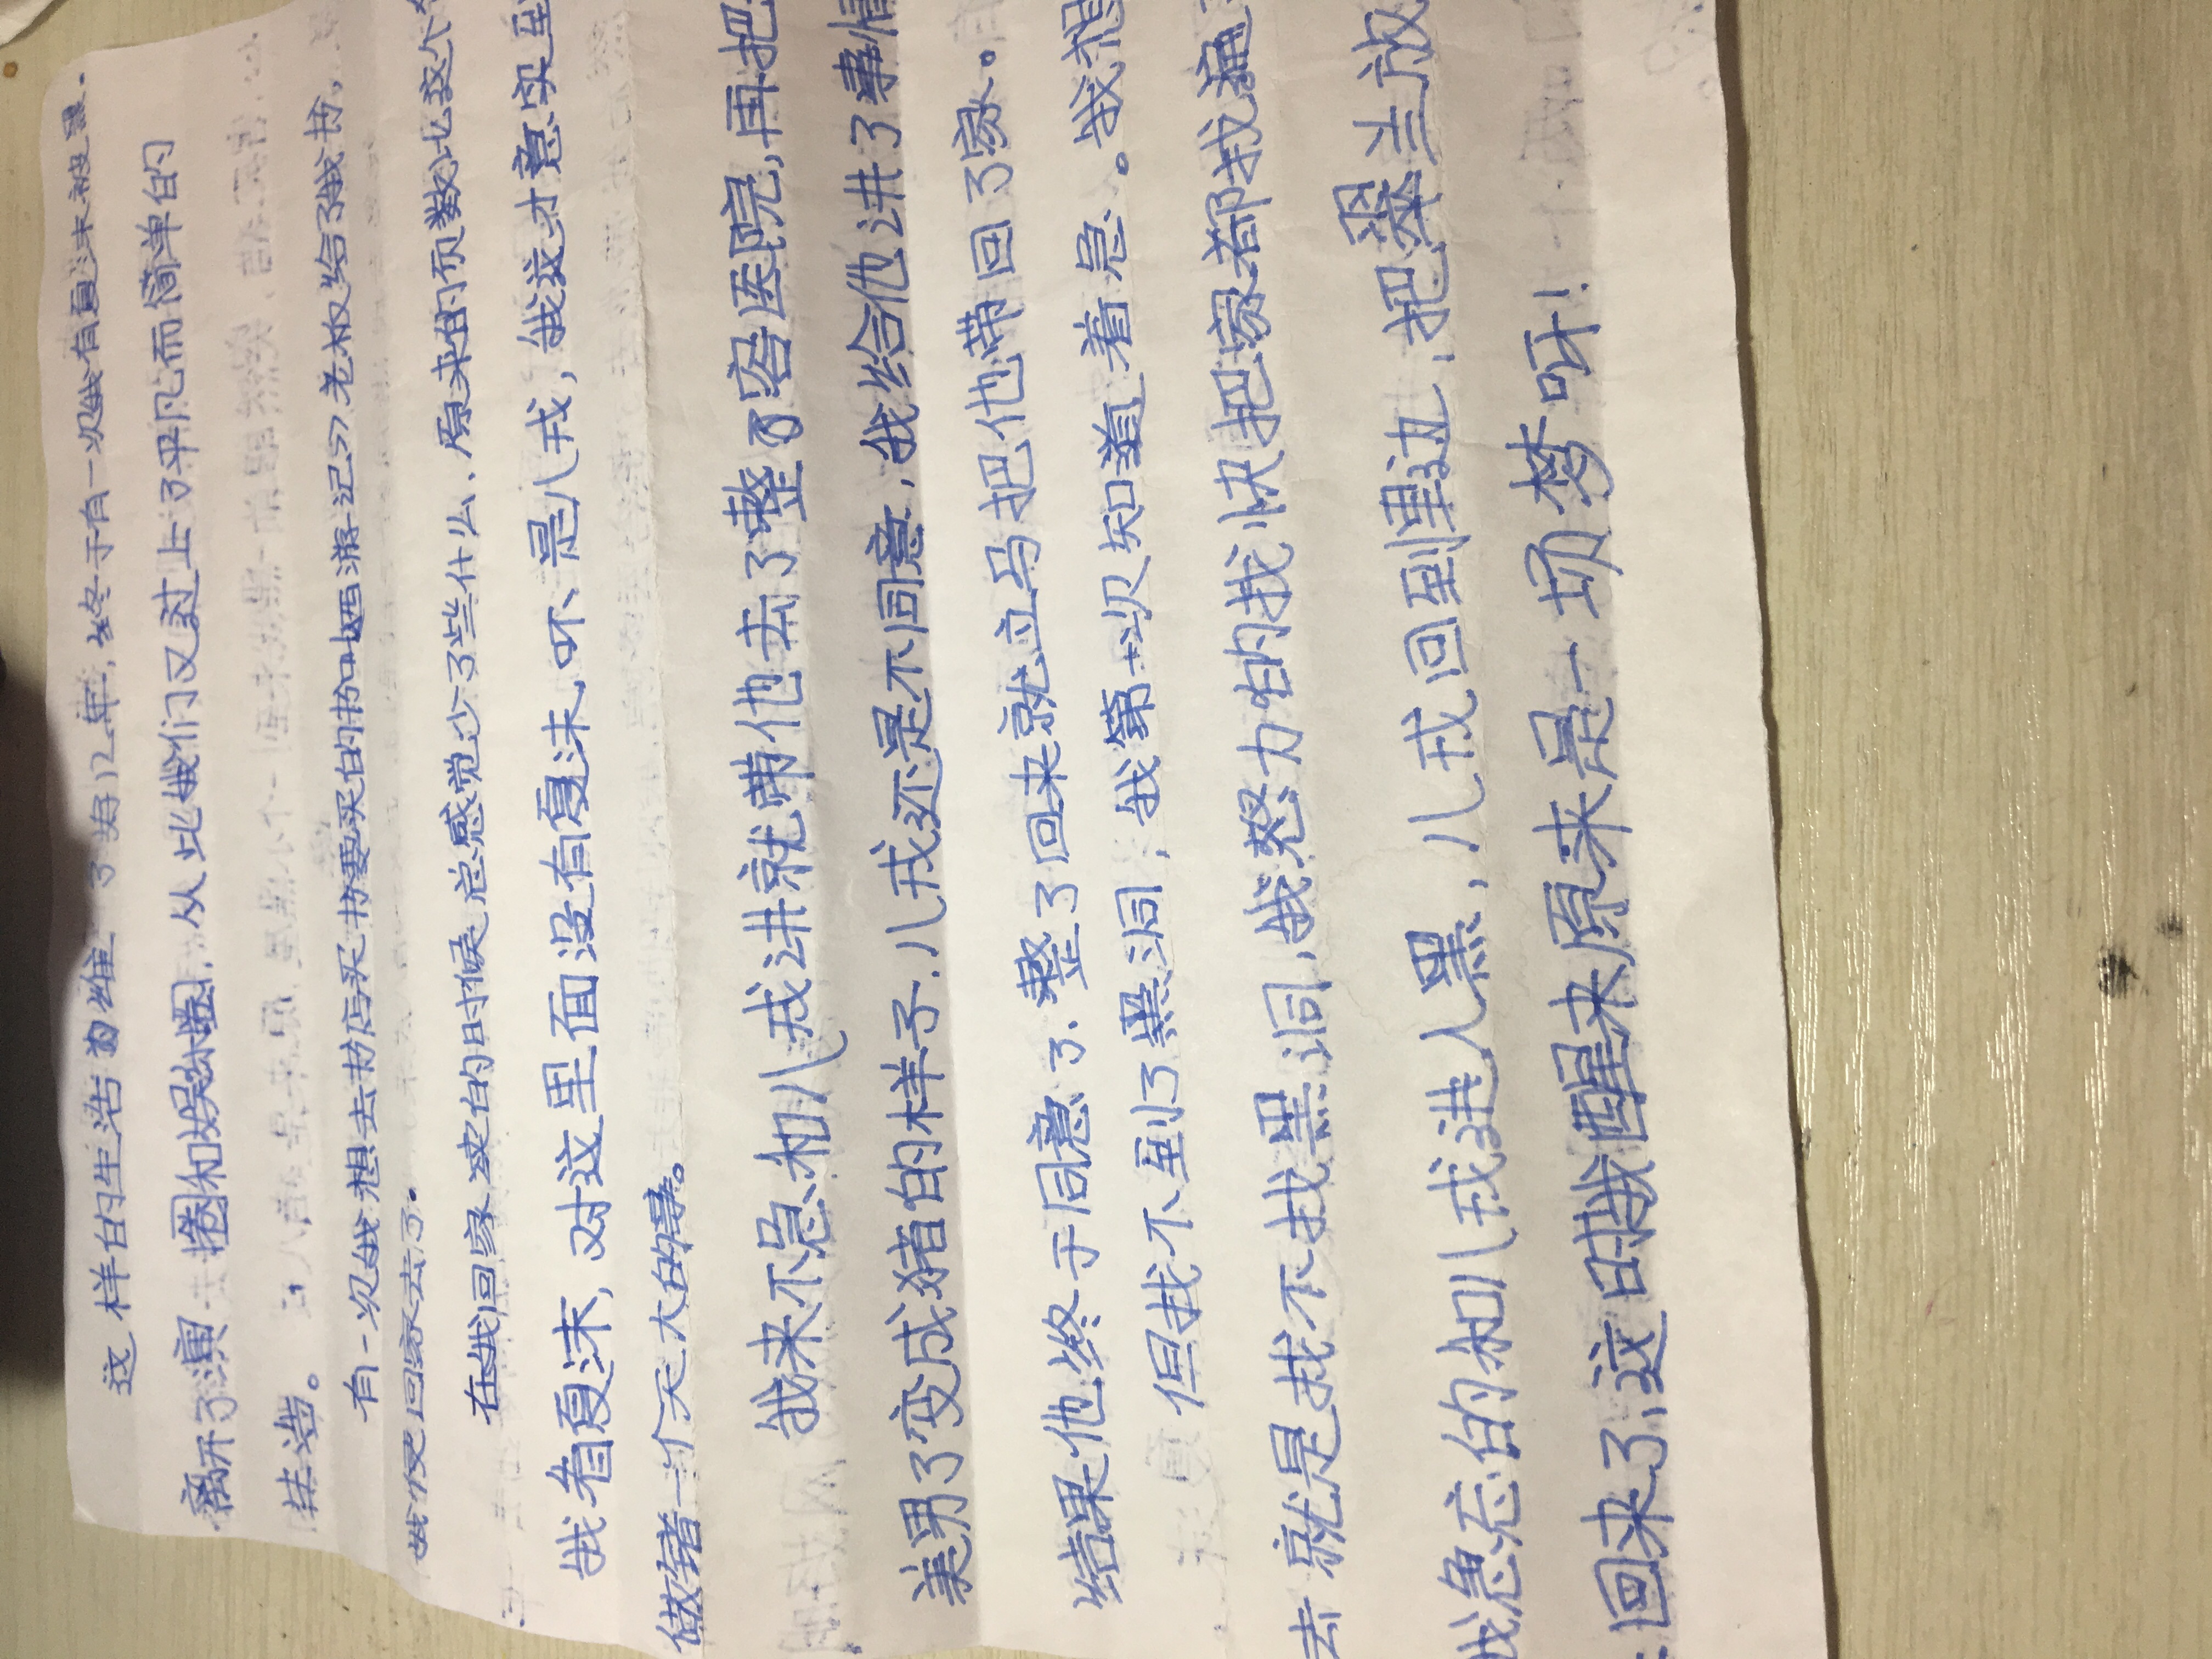 这样的生活维了好12年,终于有一次我有夏沫被黑.
离开了演圈和娱乐圈,从此我们又过上了平凡而简单的
生活。
有一次我想去书店买书要买的书叫西游记,老板给了我书,
我便回家去了。
在我回家读的时候总感觉少了些什么,原来的页数比这个
我看夏沫,对这里面没有夏沫,呀不是八戒,我这才意实到
做错一个天大的事。
我来不急和八戒讲就带他去了整容医院,再把
美男了变成猪的样子.八戒还是不同意,我给他讲了事情
结果他终于同意了.整了回来就立马把他带回了家。
但找不到了黑洞,我第一次知道着急。我想
去就是找不找黑洞,我怒力的找快把家都找遍
我急忘的和八戒进入黑,八戒回到里边,把
回来了,这时我醒来原来是一场梦呀!